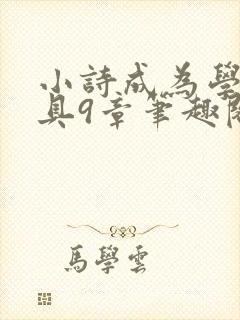 小詩成為學
具9章筆趣閣
馬學雲